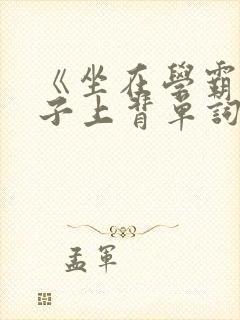 《坐在學霸
子上背單詞
孟軍